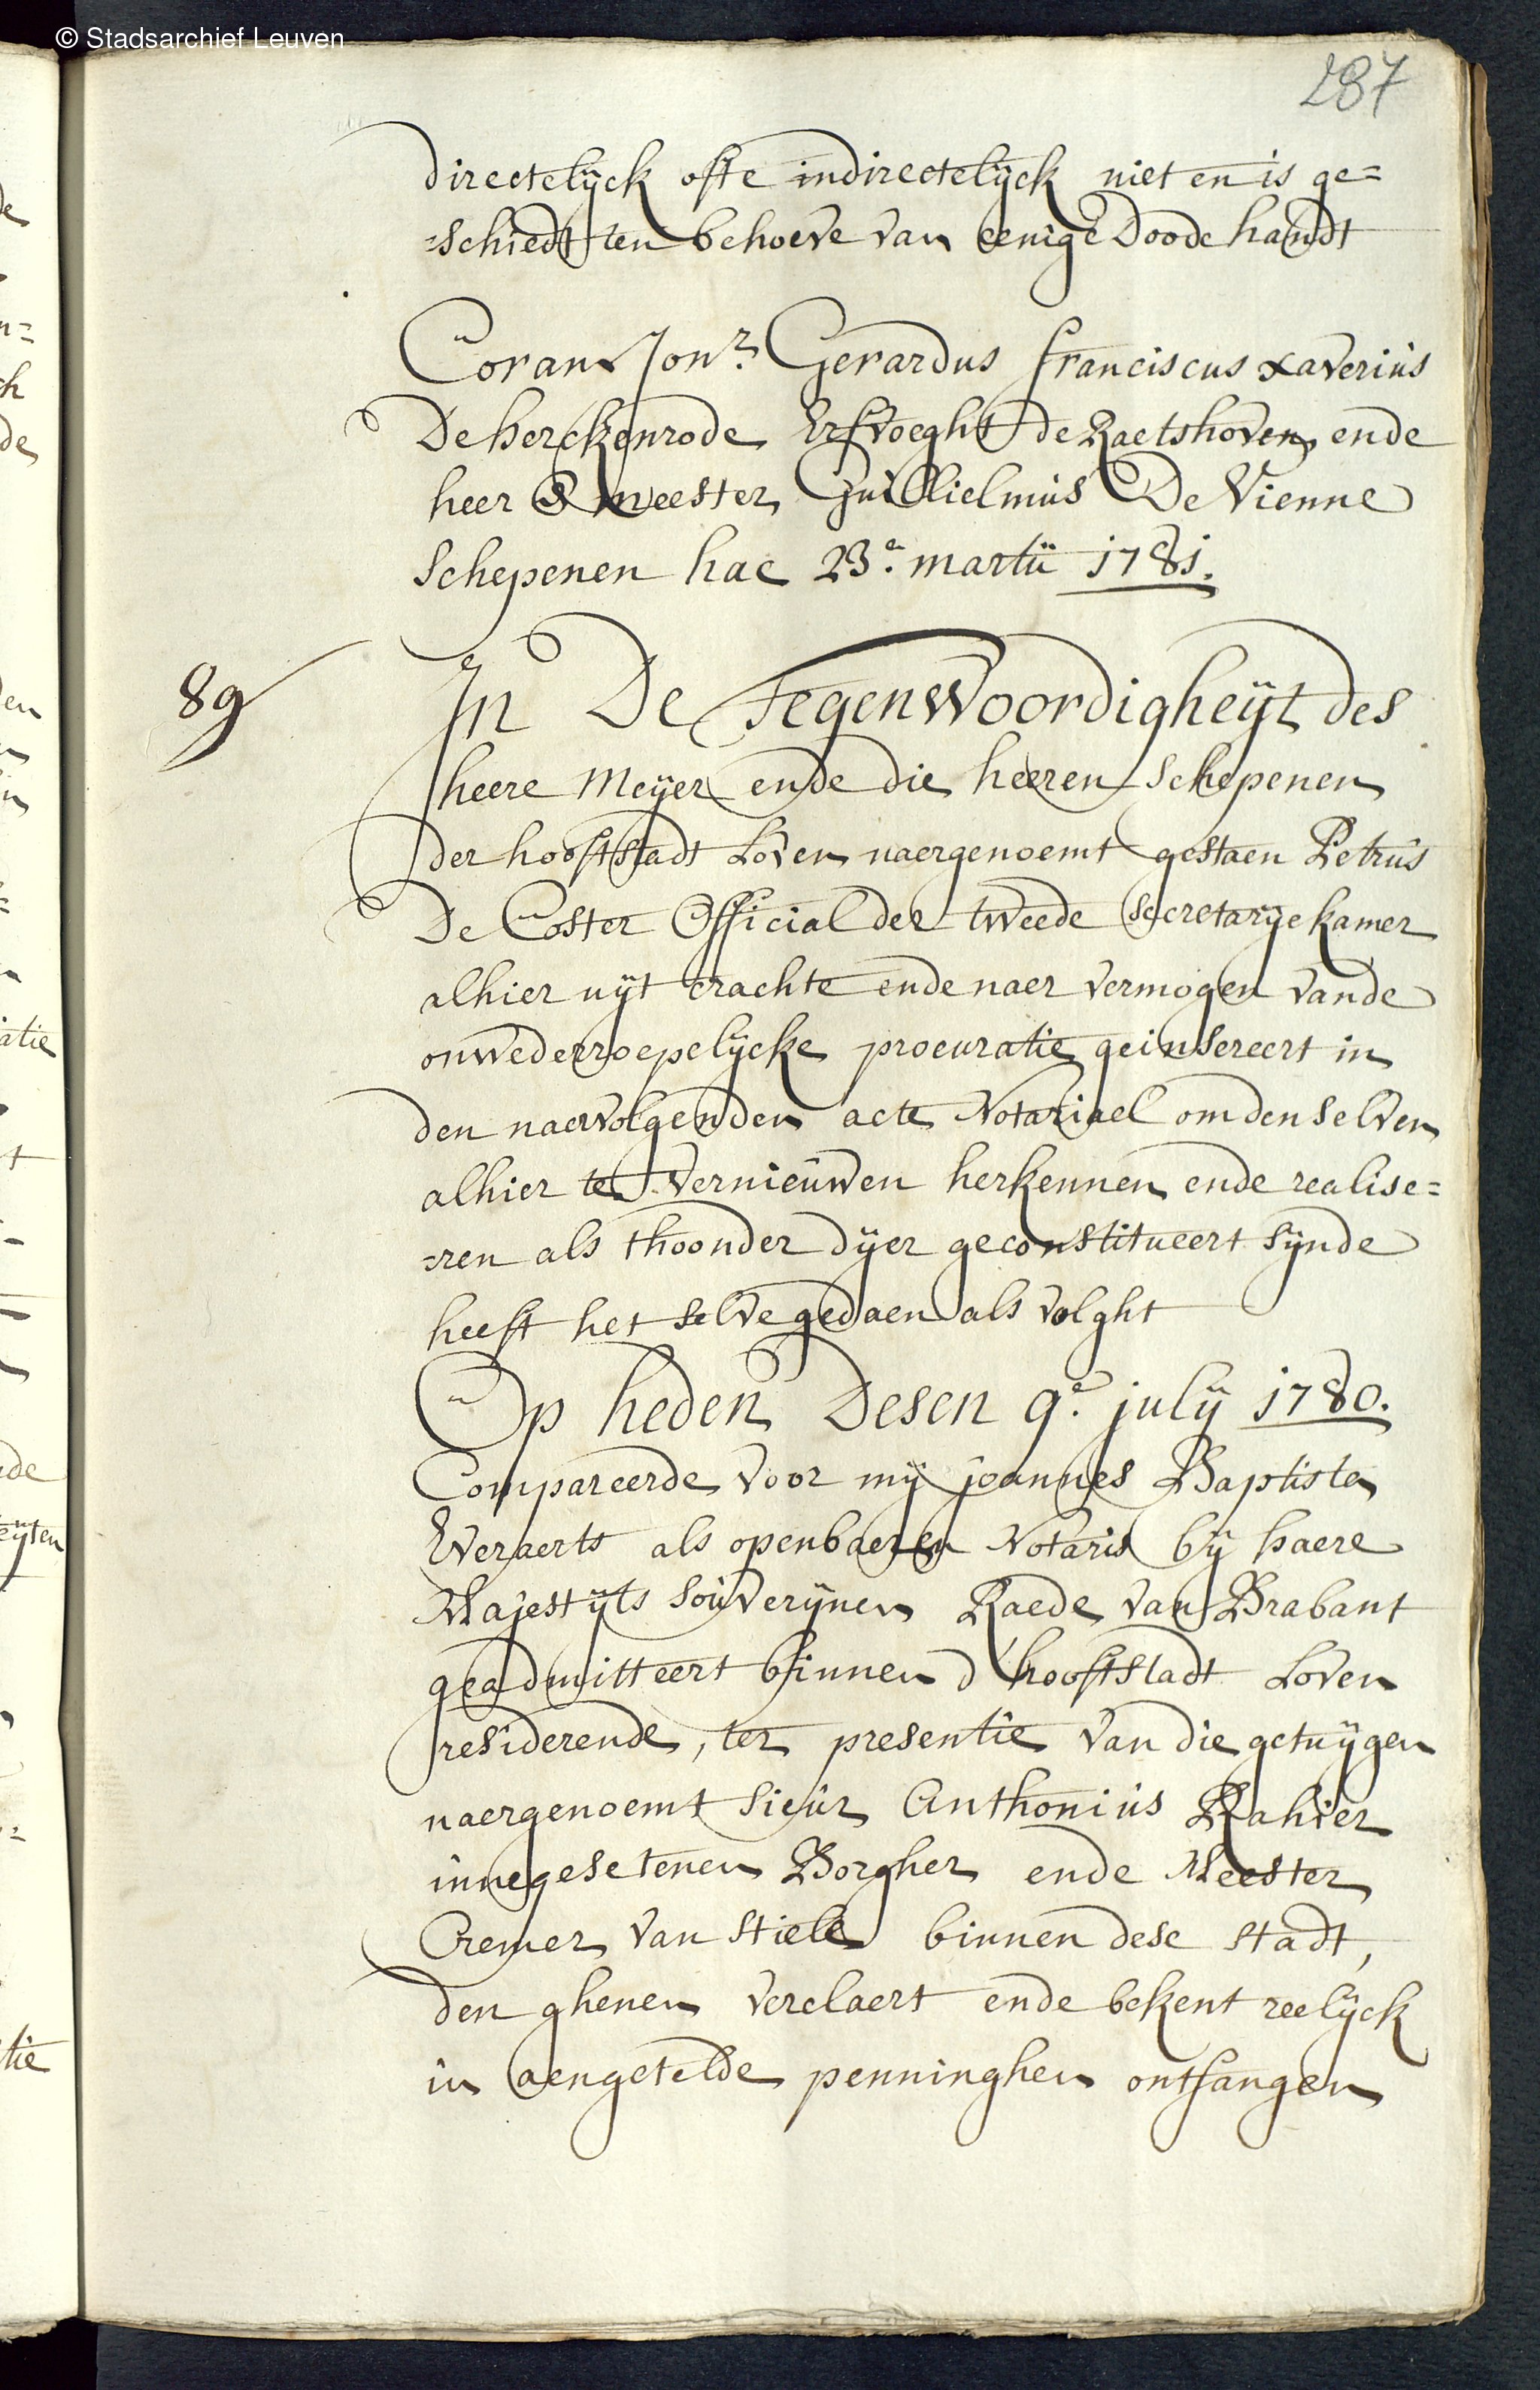 © Stadsarchief Leuven
287
directelÿck ofte indirectelÿck niet en is ge=
=schiedt ten behoeve van eenige Doode handt
Coram Jonr. Gerardus franciscus xaverius
De herckenrode Erfvoeght de Raetshoven ende
heer & meester Guillielmus De Vienne
Schepenen hac 23a. martii 1781.
89
In De Tegenwoordigheÿt des
heere Meÿer ende die heeren Schepenen
der hooftstadt Loven naergenoemt gestaen Petrus
De Coster Official der tweede Secretarÿe kamer
alhier uÿt crachte ende naer vermogen vande
onwederroepelÿcke procuratie geinsereert in
den naervolgenden acte Notariael om den selven
alhier te vernieuwen herkennen ende realise=
=ren als thoonder dÿer geconstitueert sÿnde
heeft het selve gedaen als volght
Op heden Desen 9e. julÿ 1780.
Compareerde voor mÿ joannes Baptista
Everaerts als openbaeren Notaris bÿ haere
Majestÿts souverÿnen Raede van Brabant
geadmitteert binnen d'hooftstadt Loven
residerende, ter presentie van die getuÿgen
naergenoemt sieur Anthonius Rahier
innegesetenen Borgher ende Meester
Cremer van stiele binnen dese stadt,
den ghenen verclaert ende bekent reelÿck
in aengetelde penninghen ontfangen
de
n=
ch
de
den
in
atie
t
nde
eÿten
tie